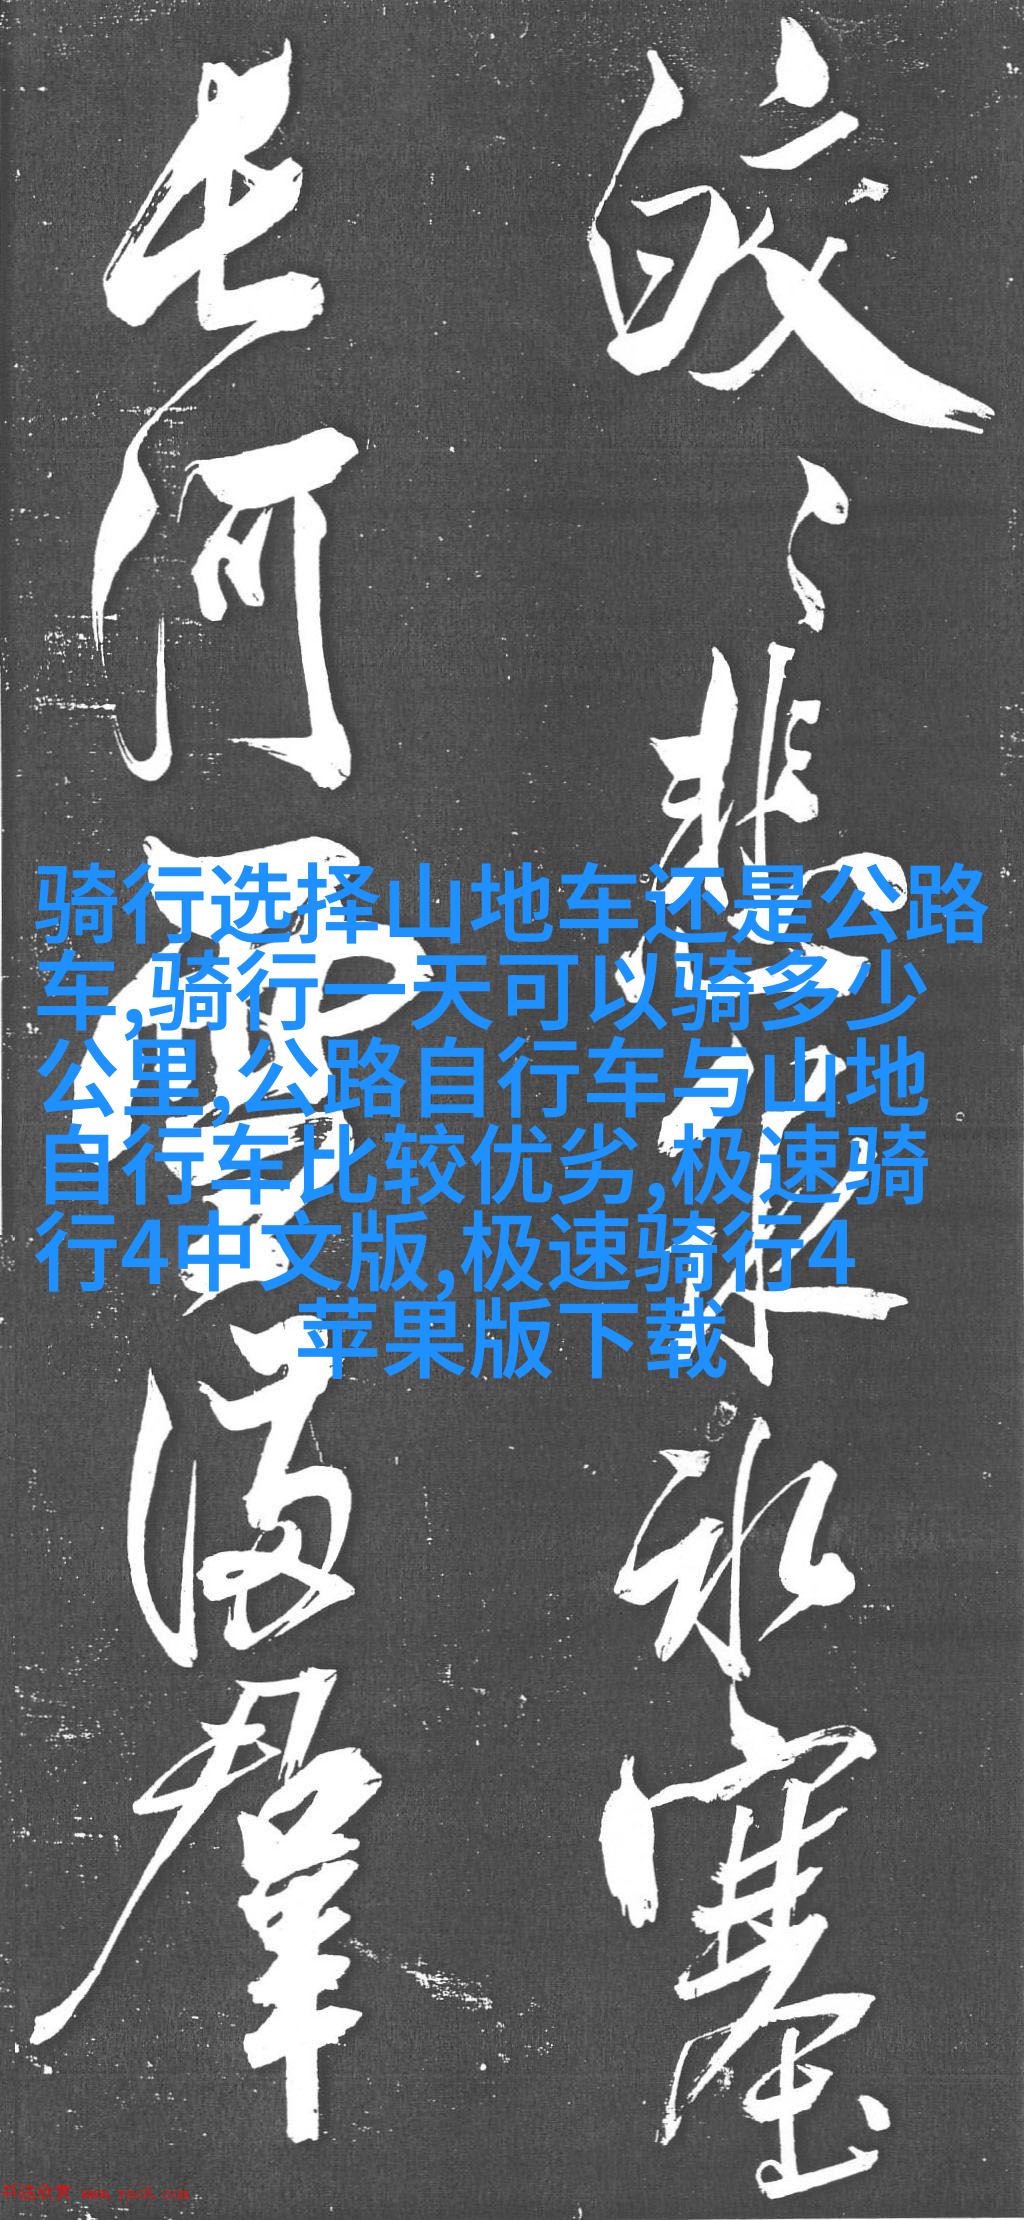 皎〻悲泉 塞
長河 滿羣
骑行选择山地车还是公路
车,骑行一天可以骑多少
公里,公路自行车与山地
自行车比较优劣,极速骑
行4中文版,极速骑行4
苹果版下载
书法欣赏 www.yac8.com